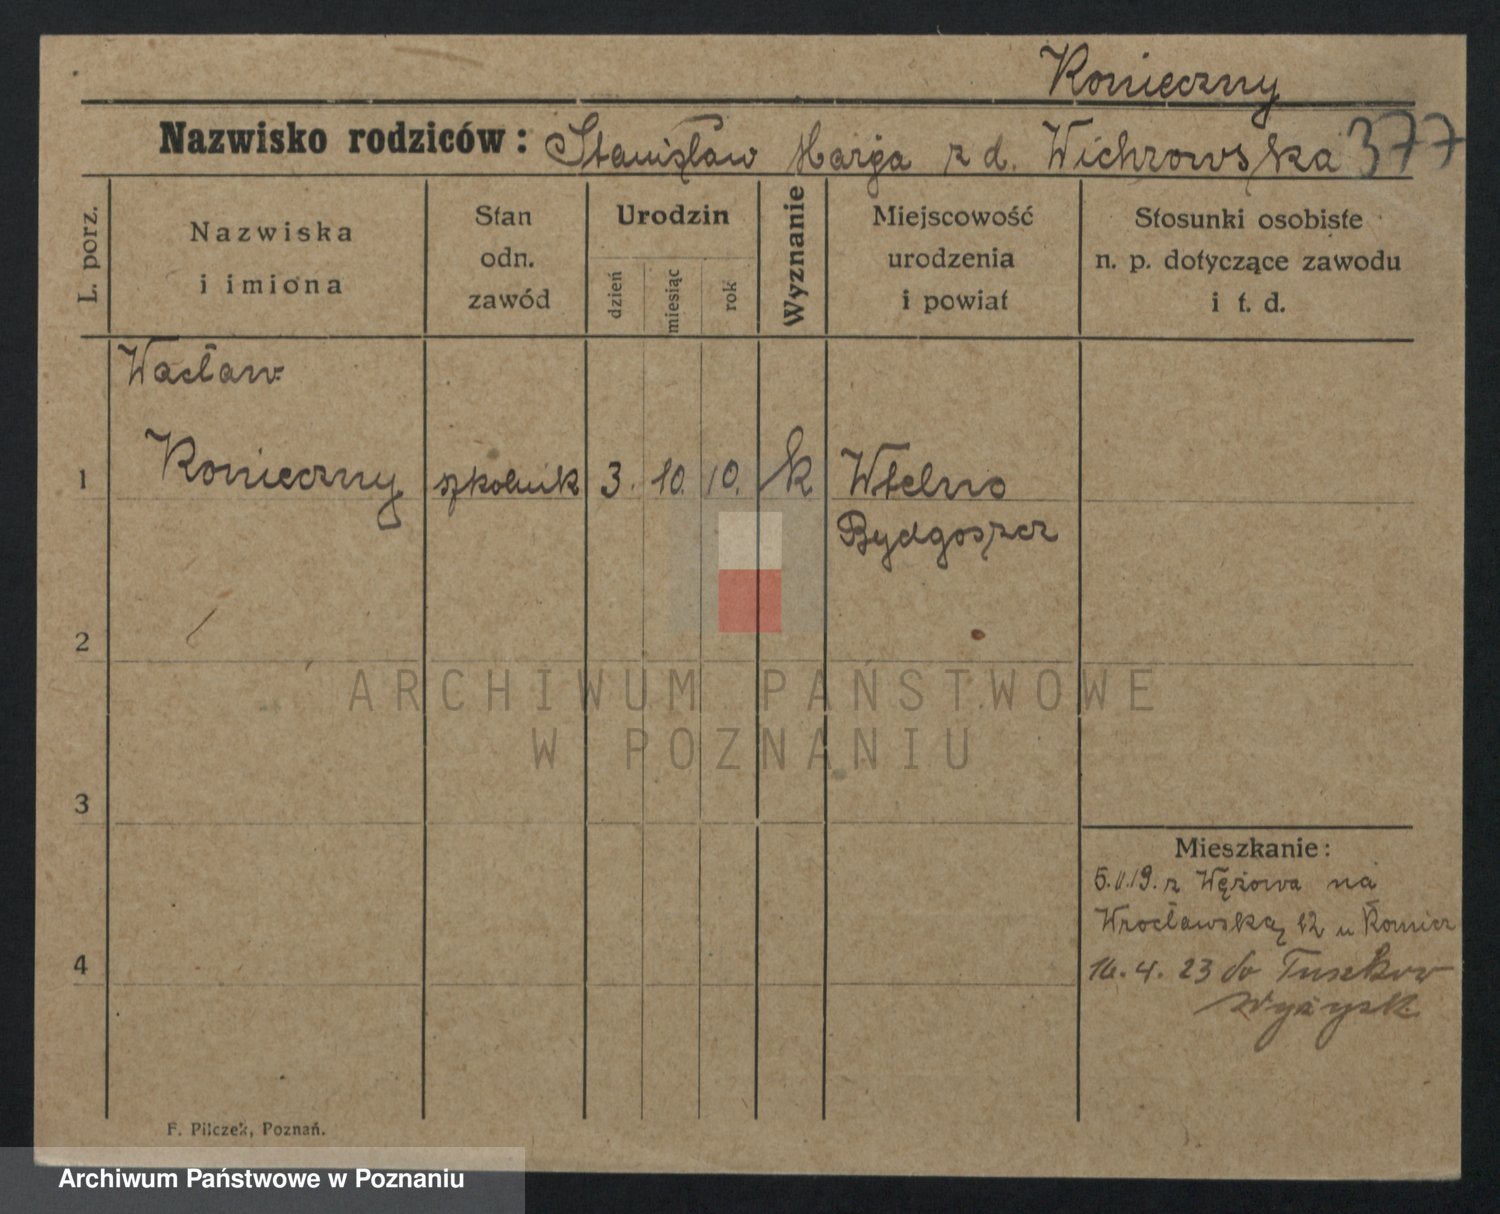 Konieczny
Nazwisko rodziców: Stanisław Marja z d. Wichrowska 377
L. porz.
Nazwiska
i imiona
Stan
odn.
zawód
Urodzin
dzień
miesiąc
rok
Wyznanie
Miejscowość
urodzenia
i powiat
Stosunki osobiste
n. p. dotyczące zawodu
i t. d.
Wacław
1 Konieczny szkolnik 3. 10. 10. k Wtelno
Bydgoszcz
2
ARCHIWUM PAŃSTWOWE
W POZNANIU
3
Mieszkanie:
z Wężowa na
Wrocławską 12 u
4
16. 4. 23 do
Wyrzysk
F. Pilczek, Poznań.
Archiwum Państwowe w Poznaniu